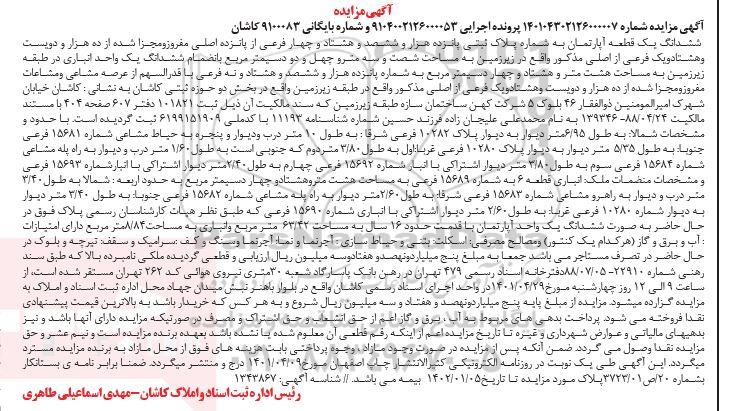 آگهی مزایده
آگهی مزایده شماره ۱۴۰۱۰۴۳۰۲۱۲۶۰۰۰۰۰۷ پرونده اجرایی ۹۱۰۴۰۰۲۱۲۶۰۰۰۰۵۳ و شماره بایگانی ۹۱۰۰۰۸۳ کاشان
ششدانگ یک قطعه آپارتمان به شماره پلاک ثبتی پانزده هزار و ششصد و هشتاد و چهار فرعی از پانزده اصلی مفروزومجزا شده از ده هزار و دویست
وهشتادویک فرعی از اصلی مذکور واقع در زیرزمین به مساحت شصت و سه مترو چهل و دو دسیمتر مربع بانضمام ششدانگ یک واحد انباری در طبقه
زیرزمین به مساحت هشت متر و هشتاد و چهار دسیمتر مربع به شماره پانزده هزار و ششصد و هشتاد و نه فرعی با قدرالسهم از عرصه مشاعی ومشاعات
مفروزومجزا شده از ده هزار و دویست وهشتادویک فرعی از اصلی مذکور واقع در طبقه زیرزمین واقع در بخش دو حوزه ثبتی کاشان به نشانی : کاشان خیابان
شهرک امیرالمومنین ذوالفقار ۴۶ بلوک ۵ شرکت کهن ساختمان سازه طبقه زیرزمین که سند مالکیت آن ذیل ثبت ۱۰۱۸۲۱ دفتر ۶۰۷ صفحه ۴۰۴ با مستند
مالکیت ۸۸/۰۴/۲۴-۱۳۹۳۴۶ به نام محمدعلی علیجان زاده فرزند حسین شماره شناسنامه ۱۱۱۹۳ با کدملی ۶۱۹۹۱۵۱۹۰۹ ثبت گردیده است. با حدود و
مشخصات شمالا: به طول ۶/۹۵متر دیوار به دیوار پلاک ۱۰۲۸۲ فرعی شرقا : به طول ۱۰ متر درب ودیوار و پنجره به حیاط مشاعی شماره ۱۵۶۸۱ فرعی
جنوبا: به طول ۵/۳۵ متر دیوار به دیوار پلاک ۱۰۲۸۰ فرعی غربا:اول به طول ۳/۸۰ متردوم که جنوبی است به طول ۱/۶۰ متر درب و دیوار به راه پله مشاعی
شماره ۱۵۶۸۴ فرعی سوم به طول ۳/۸۰ متر دیوار اشتراکی با انبار شماره ۱۵۶۹۲ فرعی چهارم به طول ۲/۴۰متر دیوار اشتراکی با انبارشماره ۱۵۶۹۳ فرعی
و مشخصات منضمات ملک: انباری قطعه ۶ به شماره ۱۵۶۸۹ فرعی به مساحت هشت متروهشتادو چهار دسیمتر مربع به حدود اربعه : شمالا به طول ۳/۴۰
متر درب و دیوار به راهرو مشاعی شماره ۱۵۶۸۳ فرعی شرقا: به طول ۲/۶۰متر دیوار به راه پله مشاعی شماره ۱۵۶۸۲ فرعی جنوبا: به طول ۳/۴۰ متر دیوار
به دیوار شماره ۱۰۲۸۰ فرعی غربا: به طول ۲/۶۰ متر دیوار اشتراکی با انباری شماره ۱۵۶۹۰ فرعی که طبق نظر هیات کارشناسان رسمی پلاک فوق در
حال حاضر به صورت ششدانگ یک واحد آپارتمان با قدمت حدود ۱۶ سال به مساحت ۶۳/۴۲ متر مربع وانباری به مساحت۸/۸۴متر مربع دارای امتیازات
: آب و برق و گاز (هرکدام یک کنتور) ومصالح مصرفی: اسکلت بتنی و حیاط سازی : آجرنما و نما: آجرنما وسنگ و کف: سرامیک و سقف: تیرچه و بلوک در
حال حاضر در تصرف مستاجر می باشد جمعا به مبلغ پنج میلیاردونهصد وهفتادوسه میلیون ریال ارزیابی و قطعی گردیده ملکی نامبرده بالا که طبق سند
رهنی شماره ۲۲۹۱۰-۸۸/۰۷/۰۵دفترخانه اسناد رسمی ۴۷۹ تهران در رهن بانک پاسارگاد شعبه ۳۰متری نیروی هوائی کد ۲۶۲ تهران مستقر شده است، از
ساعت ۹ الی ۱۲ روز چهارشنبه مورخ۱۴۰۱/۰۴/۲۹در واحد اجرای اسناد رسمی کاشان واقع در بلوار باهنر نبش میدان جهاد محل اداره ثبت اسناد و املاک به
مزایده گزارده میشود. مزایده از مبلغ پایه پنج میلیاردونهصد و هفتاد و سه میلیون ریال شروع و به هر کس که خریدار باشد به بالاترین قیمت پیشنهادی
نقدا فروخته می شود. پرداخت بدهی های مربوط به آب، برق و گاز اعم از حق انشعاب و حق اشتراک و مصرف در صورتیکه مزایده دارای آنها باشد و نیز
بدهیهای مالیاتی و عوارض شهرداری و غیره تا تاریخ مزایده اعم از اینکه رقم قطعی آن معلوم شده یا نشده باشد بعهده برنده مزایده است و نیم عشر و حق
مزایده نقدا وصول می گردد. ضمن آنکه پس از مزایده در صورت وجود مازاد، وجوه پرداختی بابت هزینه های فوق از محل مازاد به برنده مزایده مسترد
میگردد. این آگهی طی یک نوبت در روزنامه الکترونیکی کثیرالانتشار چاپ اصفهان مورخ۱۴۰۱/۰۴/۰۹ درج و منتشر میگردد. ضمنا برابر نامه ی بستانکار
بشماره ۲۰/ص/۳۷۲۳/۰۱پلاک مورد مزایده تا تاریخ۱۴۰۲/۰۱/۰۵ بیمه می باشد. // شناسه آگهی: ۱۳۴۳۸۶۷
رئیس اداره ثبت اسناد واملاک کاشان-مهدی اسماعیلی طاهری